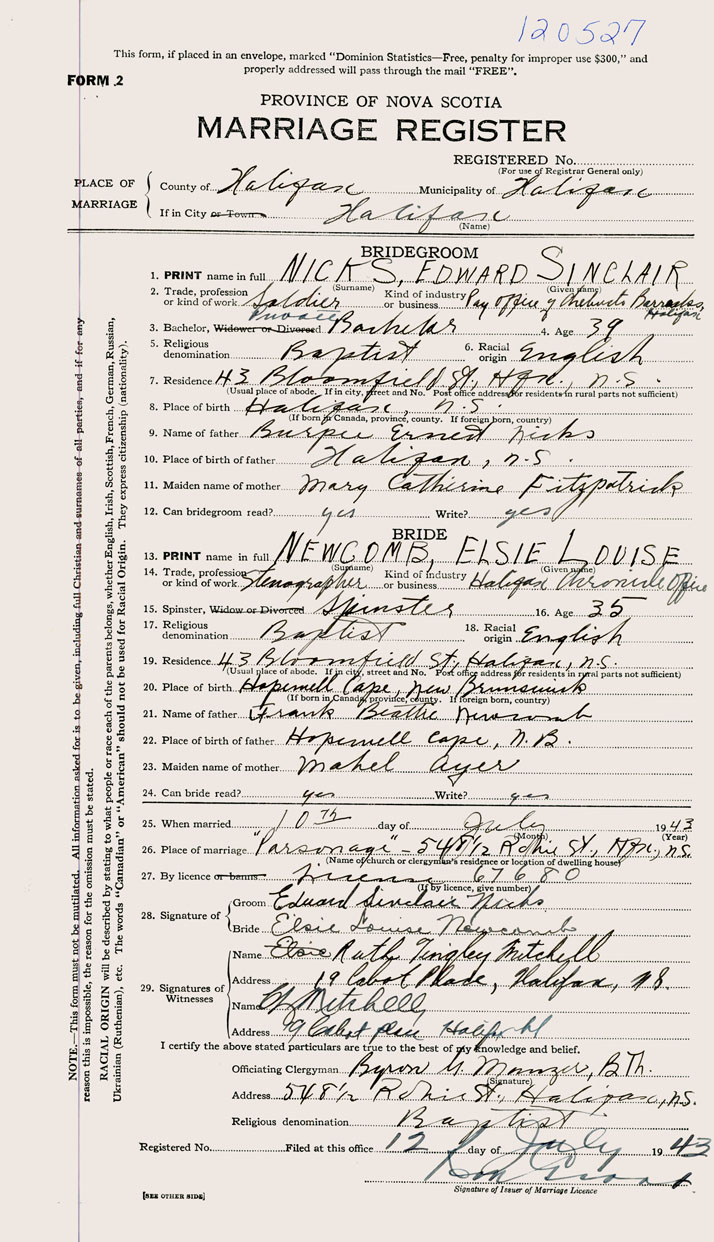 120527
This form, if placed in an envelope, marked "Dominion Statistics—Free, penalty for improper use $300," and
properly addressed will pass through the mail "FREE".
FORM 2
PROVINCE OF NOVA SCOTIA
MARRIAGE REGISTER
REGISTERED No.
(For use of Registrar General only)
PLACE OF MARRIAGE
County of Halifax Municipality of Halifax
If in City or Town Halifax
(Name)
BRIDEGROOM
1. PRINT name in full NICKS, EDWARD SINCLAIR
(Surname) (Given name)
2. Trade, profession or kind of work Soldier Private Kind of industry or business Pay office of Barracks, Halifax
3. Bachelor, Widower or Divorced Bachelor 4. Age 39
5. Religious denomination Baptist 6. Racial origin English
7. Residence 43 Bloomfield St., Hfx., N.S.
(Usual place of abode. If in city, street and No. Post office address for residents in rural parts not sufficient)
8. Place of birth Halifax, N.S.
(If born in Canada, province, county. If foreign born, country)
9. Name of father Burpee Ernest Nicks
10. Place of birth of father Halifax, N.S.
11. Maiden name of mother Mary Catherine Fitzpatrick
12. Can bridegroom read? yes Write? yes
BRIDE
13. PRINT name in full NEWCOMB, ELSIE LOUISE
(Surname) (Given name)
14. Trade, profession or kind of work Stenographer Kind of industry or business Halifax Chronicle Office
15. Spinster, Widow or Divorced Spinster 16. Age 35
17. Religious denomination Baptist 18. Racial origin English
19. Residence 43 Bloomfield St, Halifax, N.S.
(Usual place of abode. If in city, street and No. Post office address for residents in rural parts not sufficient)
20. Place of birth Hopewell Cape, New Brunswick
(If born in Canada, province, county. If foreign born, country)
21. Name of father Frank Beattie Newcomb
22. Place of birth of father Hopewell Cape, N.B.
23. Maiden name of mother Mabel Ayer
24. Can bride read? yes Write? yes
25. When married 10th day of July 1943
(Month) (Year)
26. Place of marriage "Parsonage" - 548 1/2 Robie St., Hfx., N.S.
(Name of church or clergyman's residence or location of dwelling house)
27. By licence or banns License 67680
(If by licence, give number)
28. Signature of
Groom Edward Sinclair Nicks
Bride Elsie Louise Newcomb
29. Signatures of Witnesses
Name Elsie Ruth Tingley Mitchell
Address 19 Cabot Place, Halifax, N.S.
Name Mitchell
Address 19 Cabot Place Halifax
I certify the above stated particulars are true to the best of my knowledge and belief.
Officiating Clergyman Byron Manzer, B.Th.
(Signature)
Address 548 1/2 Robie St., Halifax, N.S.
Religious denomination Baptist
Registered No. Filed at this office 12 day of July 1943
Signature of Issuer of Marriage Licence
[SEE OTHER SIDE]
NOTE.—This form must not be mutilated. All information asked for is to be given, including full Christian and surnames of all parties, and if for any
reason this is impossible, the reason for the omission must be stated.
RACIAL ORIGIN will be described by stating to what people or race each of the parents belongs, whether English, Irish, Scottish, French, German, Russian,
Ukrainian (Ruthenian), etc. The words "Canadian" or "American" should not be used for Racial Origin. They express citizenship (nationality).